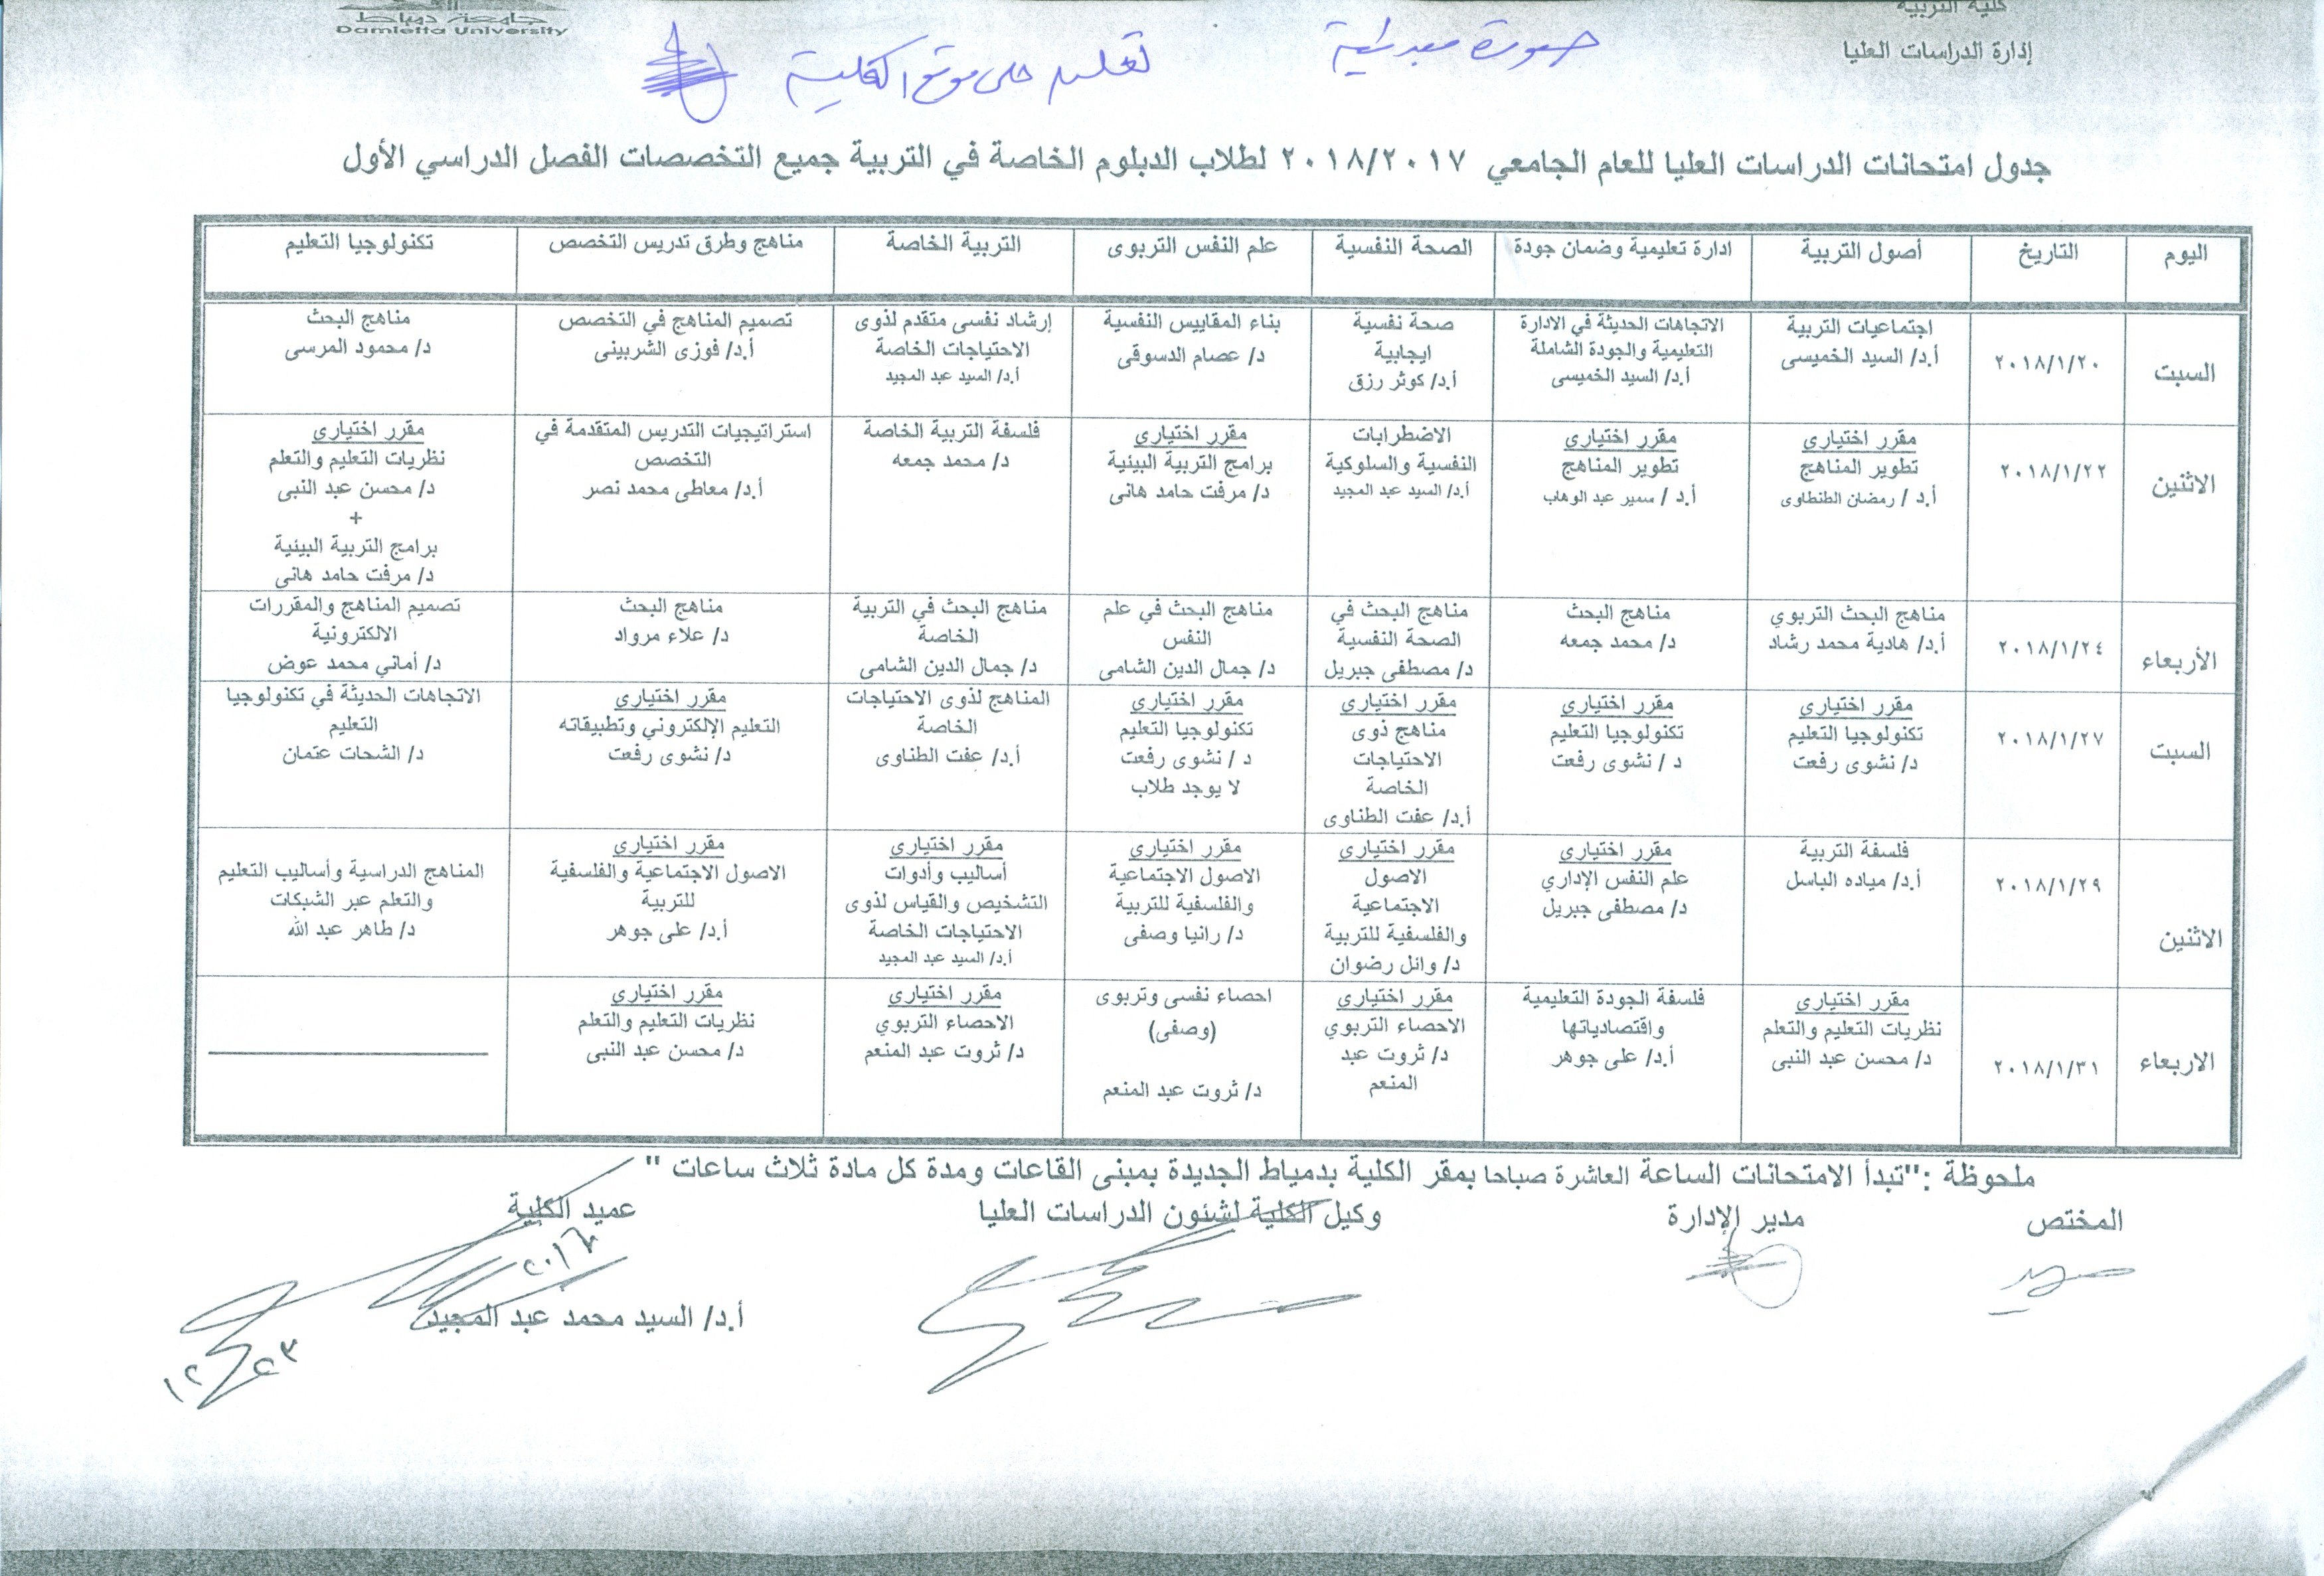 كلية التربية
إدارة الدراسات العليا
جامعة دمياط
Damietta University
صورة مبدئية
تعلن على موقع الكلية
جدول امتحانات الدراسات العليا للعام الجامعي ٢٠١٨/٢٠١٧ لطلاب الدبلوم الخاصة في التربية جميع التخصصات الفصل الدراسي الأول
اليوم
التاريخ
أصول التربية
ادارة تعليمية وضمان جودة
الصحة النفسية
علم النفس التربوى
التربية الخاصة
مناهج وطرق تدريس التخصص
تكنولوجيا التعليم
السبت
٢٠١٨/١/٢٠
اجتماعيات التربية
أ.د/ السيد الخميسى
الاتجاهات الحديثة في الادارة
التعليمية والجودة الشاملة
أ.د/ السيد الخميسى
صحة نفسية
ايجابية
أ.د/ كوثر رزق
بناء المقاييس النفسية
د/ عصام الدسوقى
إرشاد نفسى متقدم لذوى
الاحتياجات الخاصة
أ.د/ السيد عبد المجيد
تصميم المناهج في التخصص
أ.د/ فوزى الشربينى
مناهج البحث
د/ محمود المرسى
الاثنين
٢٠١٨/١/٢٢
مقرر اختيارى
تطوير المناهج
أ.د / رمضان الطنطاوى
مقرر اختيارى
تطوير المناهج
أ.د / سمير عبد الوهاب
الاضطرابات
النفسية والسلوكية
أ.د/ السيد عبد المجيد
مقرر اختيارى
برامج التربية البيئية
د/ مرفت حامد هانى
فلسفة التربية الخاصة
د/ محمد جمعه
استراتيجيات التدريس المتقدمة في
التخصص
أ.د/ معاطى محمد نصر
مقرر اختيارى
نظريات التعليم والتعلم
د/ محسن عبد النبى
+
برامج التربية البيئية
د/ مرفت حامد هانى
الأربعاء
٢٠١٨/١/٢٤
مناهج البحث التربوي
أ.د/ هادية محمد رشاد
مناهج البحث
د/ محمد جمعه
مناهج البحث في
الصحة النفسية
د/ مصطفى جبريل
مناهج البحث في علم
النفس
د/ جمال الدين الشامى
مناهج البحث في التربية
الخاصة
د/ جمال الدين الشامى
مناهج البحث
د/ علاء مرواد
تصميم المناهج والمقررات
الالكترونية
د/ أماني محمد عوض
السبت
٢٠١٨/١/٢٧
مقرر اختيارى
تكنولوجيا التعليم
د/ نشوى رفعت
مقرر اختيارى
تكنولوجيا التعليم
د / نشوى رفعت
مقرر اختيارى
مناهج ذوى
الاحتياجات
الخاصة
أ.د/ عفت الطناوى
مقرر اختيارى
تكنولوجيا التعليم
د / نشوى رفعت
لا يوجد طلاب
المناهج لذوى الاحتياجات
الخاصة
أ.د/ عفت الطناوى
مقرر اختيارى
التعليم الإلكتروني وتطبيقاته
د/ نشوى رفعت
الاتجاهات الحديثة في تكنولوجيا
التعليم
د/ الشحات عتمان
الاثنين
٢٠١٨/١/٢٩
فلسفة التربية
أ.د/ مياده الباسل
مقرر اختيارى
علم النفس الإداري
د/ مصطفى جبريل
مقرر اختيارى
الاصول
الاجتماعية
والفلسفية للتربية
د/ وائل رضوان
مقرر اختيارى
الاصول الاجتماعية
والفلسفية للتربية
د/ رانيا وصفى
مقرر اختيارى
أساليب وأدوات
التشخيص والقياس لذوى
الاحتياجات الخاصة
أ.د/ السيد عبد المجيد
مقرر اختيارى
الاصول الاجتماعية والفلسفية
للتربية
أ.د/ على جوهر
المناهج الدراسية وأساليب التعليم
والتعلم عبر الشبكات
د/ طاهر عبد الله
الاربعاء
٢٠١٨/١/٣١
مقرر اختيارى
نظريات التعليم والتعلم
د/ محسن عبد النبى
فلسفة الجودة التعليمية
واقتصادياتها
أ.د/ على جوهر
مقرر اختيارى
الاحصاء التربوي
د/ ثروت عبد
المنعم
احصاء نفسى وتربوى
(وصفى)
د/ ثروت عبد المنعم
مقرر اختيارى
الاحصاء التربوي
د/ ثروت عبد المنعم
مقرر اختيارى
نظريات التعليم والتعلم
د/ محسن عبد النبى
ملحوظة :"تبدأ الامتحانات الساعة العاشرة صباحا بمقر الكلية بدمياط الجديدة بمبنى القاعات ومدة كل مادة ثلاث ساعات "
المختص
مدير الإدارة
وكيل الكلية لشئون الدراسات العليا
عميد الكلية
أ.د/ السيد محمد عبد المجيد